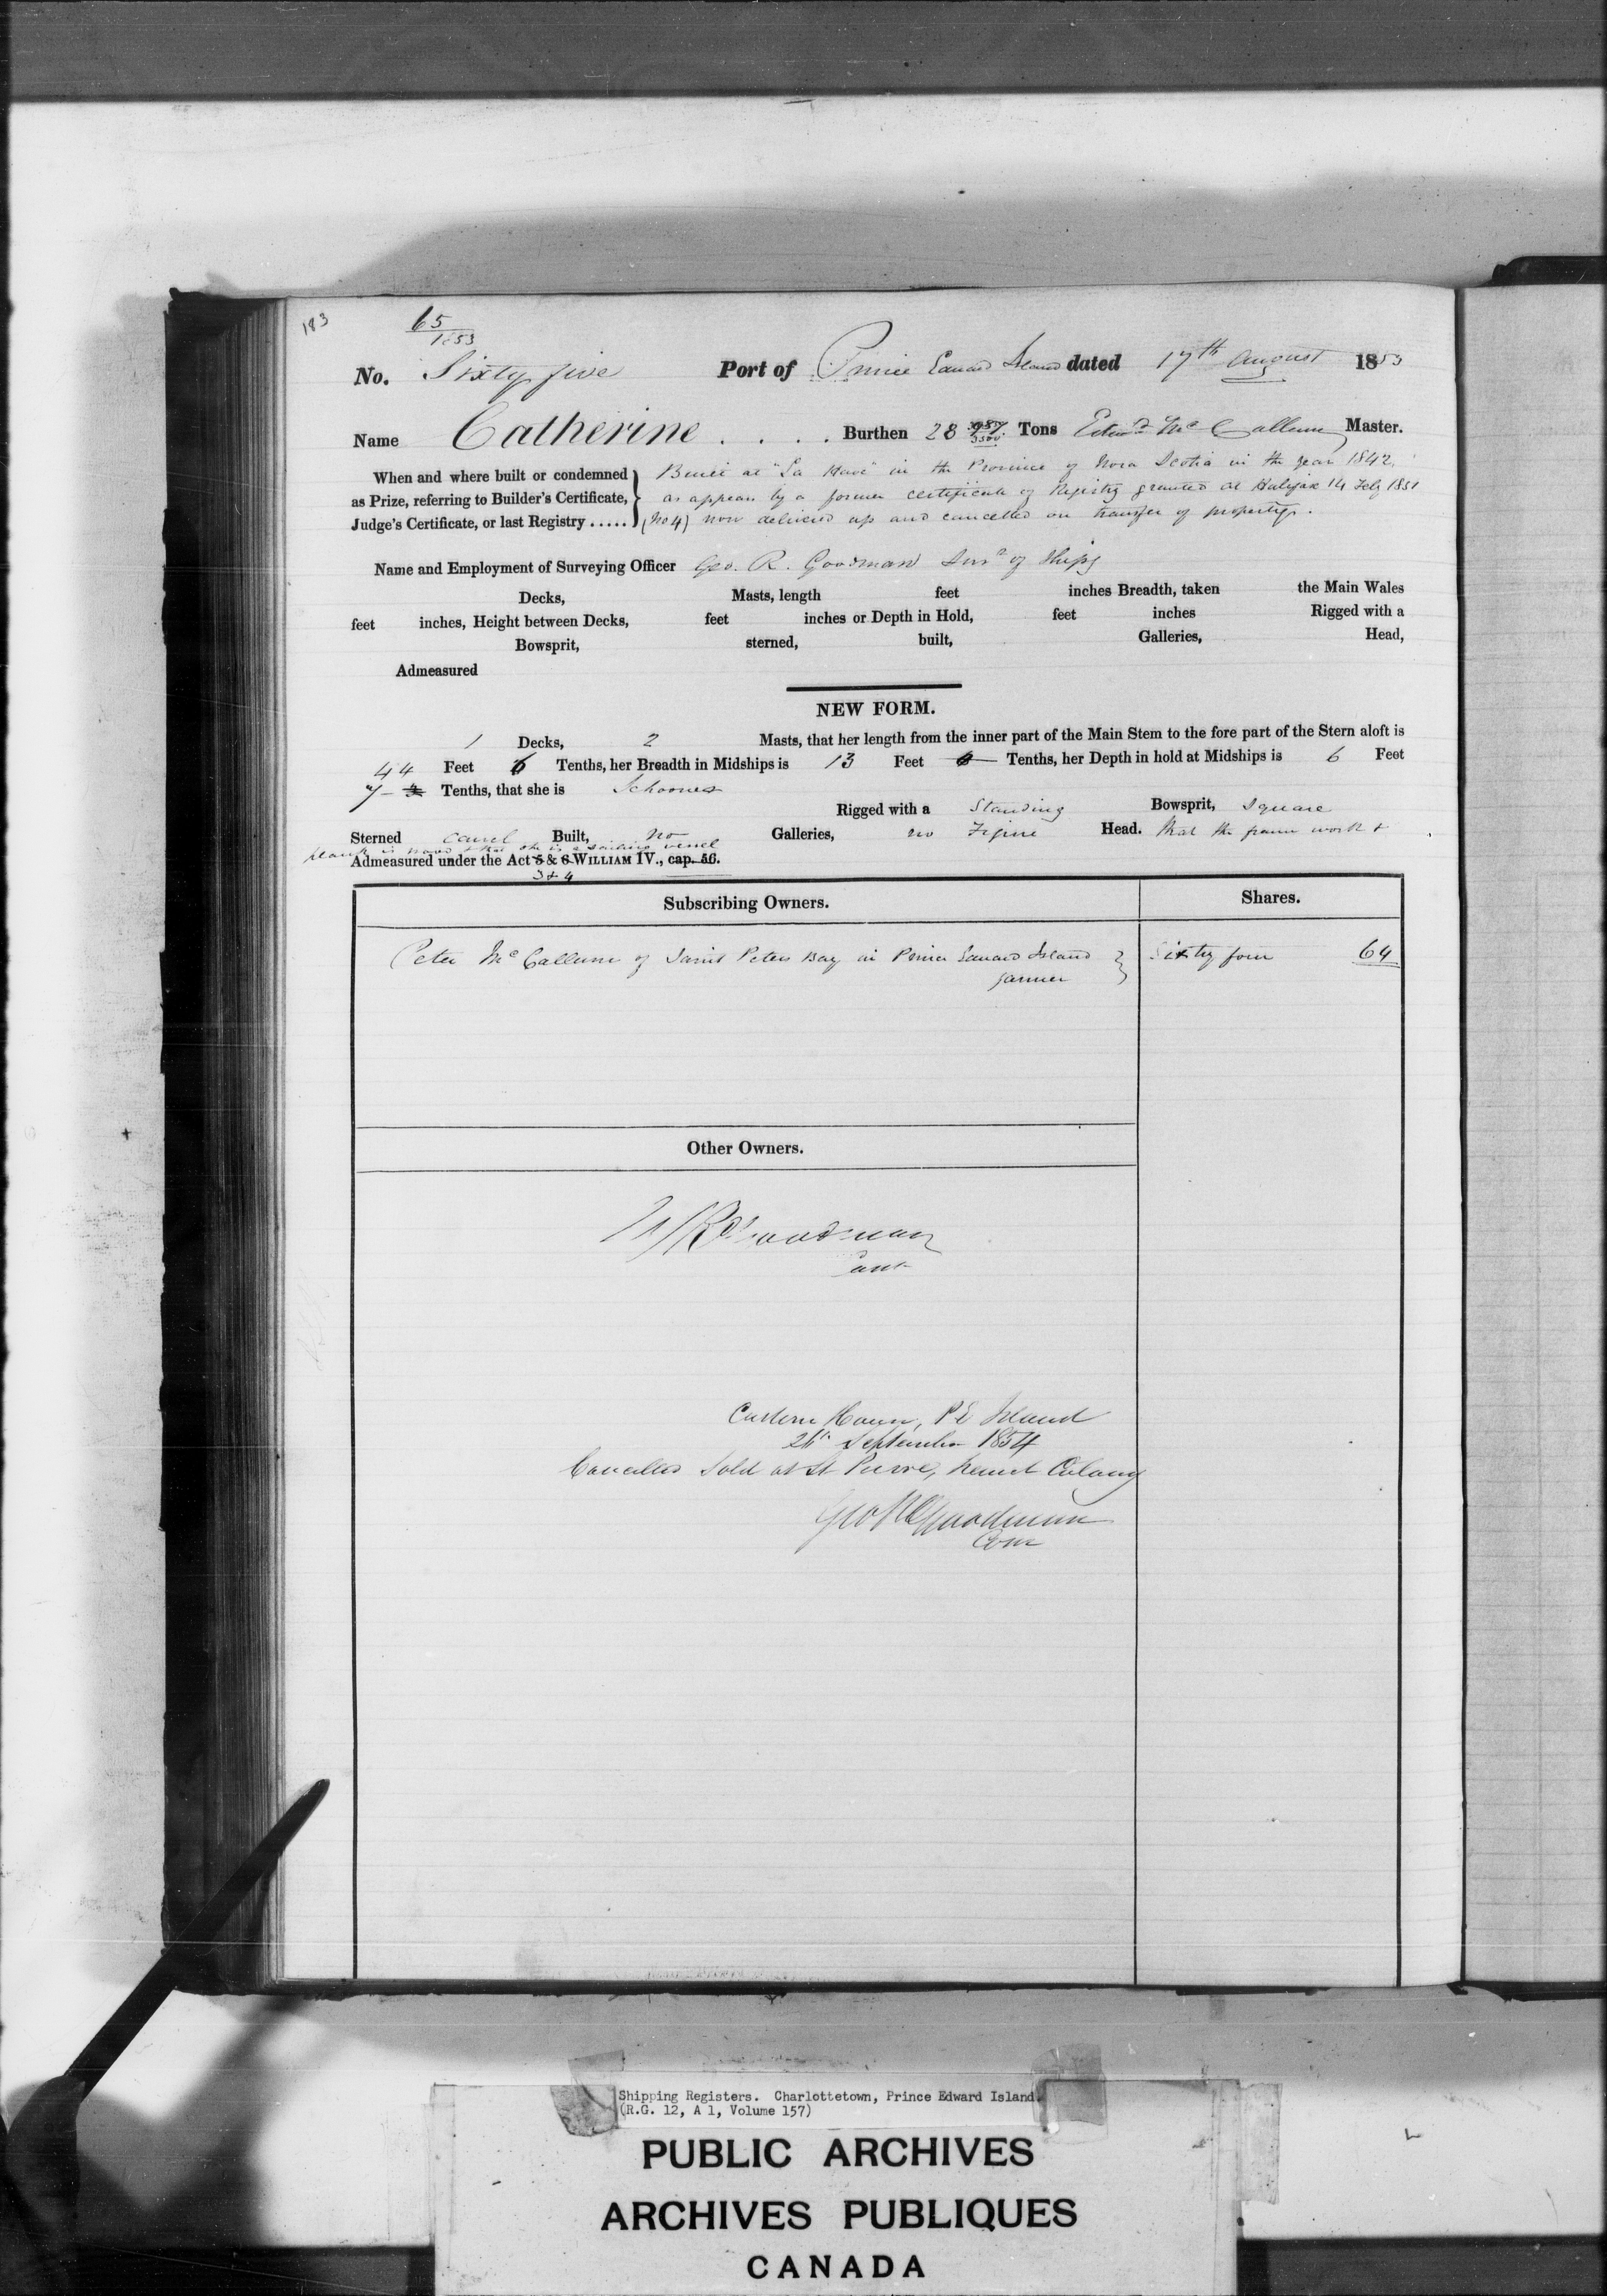 183
65
1853
No. Sixty five Port of Prince Edward Island dated 17th August 1853
Name Catherine . . . . Burthen 28 Tons Edwd McCallum Master.
When and where built or condemned Built at "La Have" in the Province of Nova Scotia in the year 1842,
as Prize, referring to Builder's Certificate, as appears by a former certificate of Registry granted at Halifax 14 Feby 1851
Judge's Certificate, or last Registry ..... (No 4) now delivered up and cancelled on transfer of property.
Name and Employment of Surveying Officer Geo. R. Goodman Survr of Ships
Decks, Masts, length feet inches Breadth, taken the Main Wales
feet inches, Height between Decks, feet inches or Depth in Hold, feet inches Rigged with a
Bowsprit, sterned, built, Galleries, Head,
Admeasured
NEW FORM.
1 Decks, 2 Masts, that her length from the inner part of the Main Stem to the fore part of the Stern aloft is
44 Feet 6 Tenths, her Breadth in Midships is 13 Feet Tenths, her Depth in hold at Midships is 6 Feet
7 Tenths, that she is Schooner Rigged with a Standing Bowsprit, Square
Sterned carvel Built, no Galleries, no Figure Head. that the frame work &
plank is wood & that she is a sailing vessel
Admeasured under the Act 5 & 6 WILLIAM IV., cap. 56.
3 & 4
Subscribing Owners. Shares.
Peter McCallum of Saint Peters Bay in Prince Edward Island Sixty four 64
farmer
Other Owners.
Goodman
Custom House, PE Island
26th September 1854
Cancelled Sold at St Pierre, French Colony
Geo R Goodman
Shipping Registers. Charlottetown, Prince Edward Island.
(R.G. 12, A 1, Volume 157)
PUBLIC ARCHIVES
ARCHIVES PUBLIQUES
CANADA